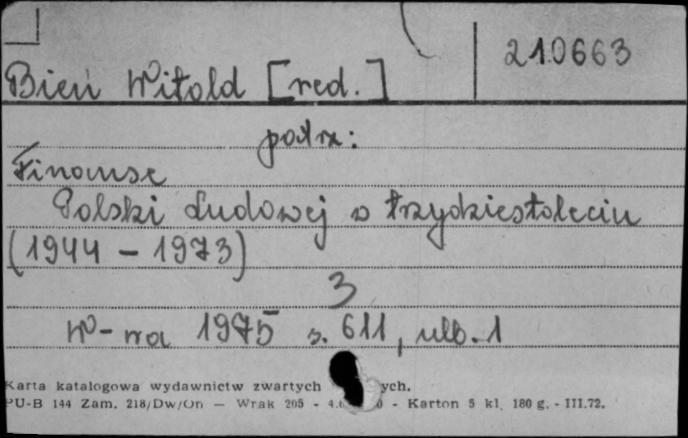 210663
Bień Witold [red.]
patrz:
Finanse
Polski Ludowej w trzydziestoleciu
(1944 - 1973)
3
W-wa 1975 s. 611, nlb. 1
Karta katalogowa wydawnictw zwartych ych.
PU-B 144 Zam. 218/Dw/On — Wrak 205 - - Karton 5 kl. 180 g. - III.72.